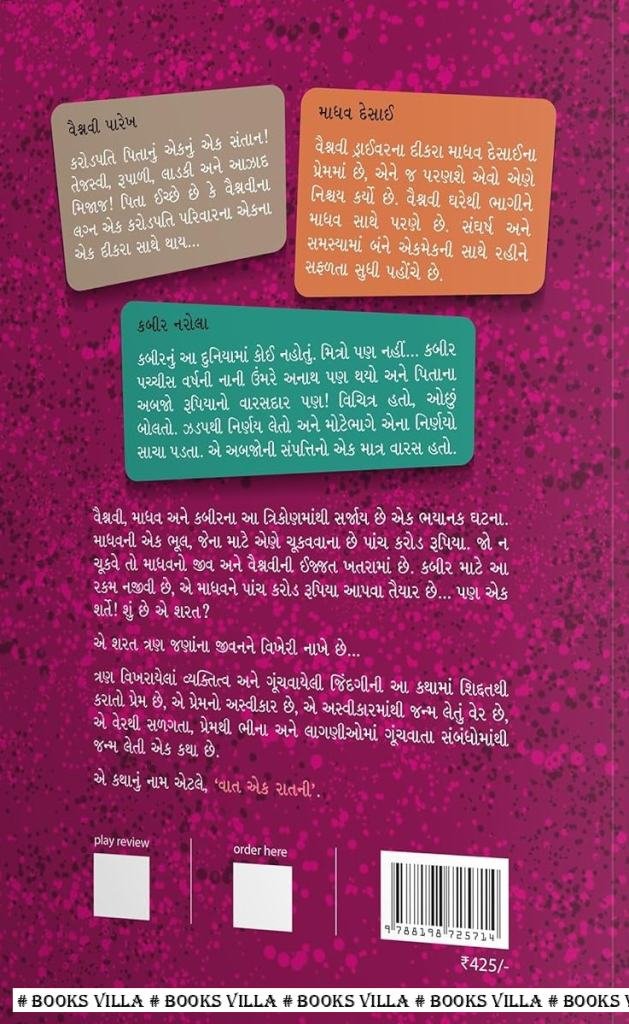 વૈશ્નવી પારેખ
કરોડપતિ પિતાનું એકનું એક સંતાન!
તેજસ્વી, રૂપાળી, લાડકી અને આઝાદ
મિજાજ! પિતા ઈચ્છે છે કે વૈશ્નવીના
લગ્ન એક કરોડપતિ પરિવારના એકના
એક દીકરા સાથે થાય...
માધવ દેસાઈ
વૈશ્નવી ડ્રાઈવરના દીકરા માધવ દેસાઈના
પ્રેમમાં છે, એને જ પરણશે એવો એણે
નિશ્ચય કર્યો છે. વૈશ્નવી ઘરેથી ભાગીને
માધવ સાથે પરણે છે. સંઘર્ષ અને
સમસ્યામાં બંને એકમેકની સાથે રહીને
સફળતા સુધી પહોંચે છે.
કબીર નરોલા
કબીરનું આ દુનિયામાં કોઈ નહોતું. મિત્રો પણ નહીં... કબીર
પચ્ચીસ વર્ષની નાની ઉંમરે અનાથ પણ થયો અને પિતાના
અબજો રૂપિયાનો વારસદાર પણ! વિચિત્ર હતો, ઓછું
બોલતો. ઝડપથી નિર્ણય લેતો અને મોટેભાગે એના નિર્ણયો
સાચા પડતા. એ અબજોની સંપત્તિનો એક માત્ર વારસ હતો.
વૈશ્નવી, માધવ અને કબીરના આ ત્રિકોણમાંથી સર્જાય છે એક ભયાનક ઘટના.
માધવની એક ભૂલ, જેના માટે એણે ચૂકવવાના છે પાંચ કરોડ રૂપિયા. જો ન
ચૂકવે તો માધવનો જીવ અને વૈશ્નવીની ઈજ્જત ખતરામાં છે. કબીર માટે આ
રકમ નજીવી છે, એ માધવને પાંચ કરોડ રૂપિયા આપવા તૈયાર છે... પણ એક
શર્તે! શું છે એ શરત?
એ શરત ત્રણ જણાંના જીવનને વિખેરી નાખે છે...
ત્રણ વિખરાયેલાં વ્યક્તિત્વ અને ગૂંચવાયેલી જિંદગીની આ કથામાં શિદ્દતથી
કરાતો પ્રેમ છે, એ પ્રેમનો અસ્વીકાર છે, એ અસ્વીકારમાંથી જન્મ લેતું વેર છે,
એ વેરથી સળગતા, પ્રેમથી ભીના અને લાગણીઓમાં ગૂંચવાતા સંબંધોમાંથી
જન્મ લેતી એક કથા છે.
એ કથાનું નામ એટલે, ‘વાત એક રાતની’.
play review
order here
9 788198 725714
₹425/-
# BOOKS VILLA # BOOKS VILLA # BOOKS VILLA # BOOKS VILLA # BOOKS V